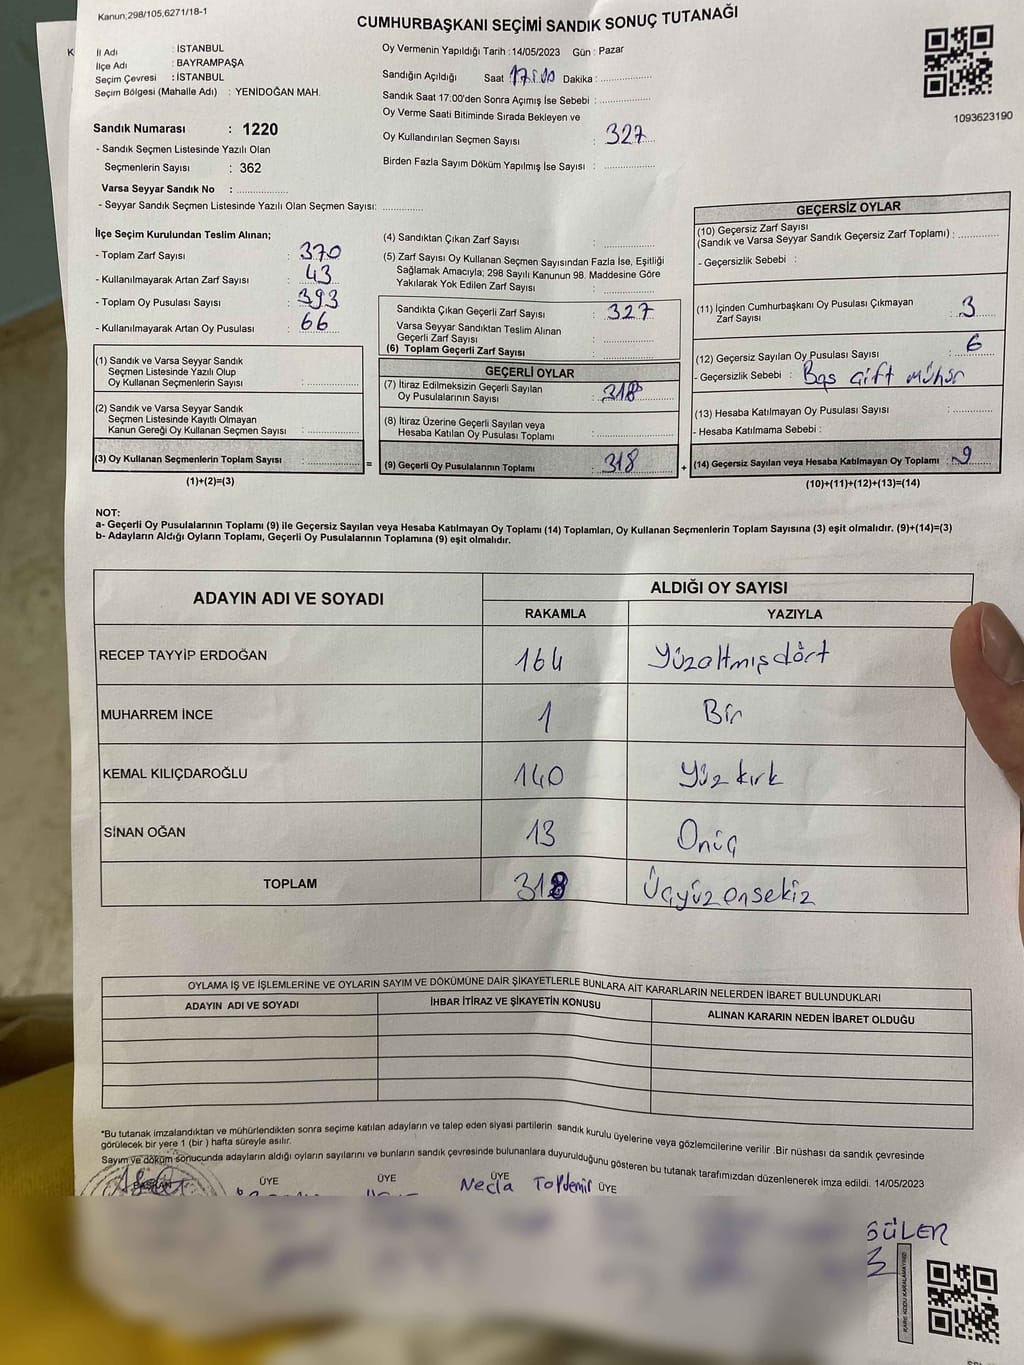 Kanun;298/105,6271/18-1
CUMHURBAŞKANI SEÇİMİ SANDIK SONUÇ TUTANAĞI
K
İl Adı : İSTANBUL
İlçe Adı : BAYRAMPAŞA
Seçim Çevresi : İSTANBUL
Seçim Bölgesi (Mahalle Adı) : YENİDOĞAN MAH.
Oy Vermenin Yapıldığı Tarih :14/05/2023 Gün : Pazar
Sandığın Açıldığı Saat 17:00 Dakika :
Sandık Saat 17:00'den Sonra Açımış İse Sebebi :
Oy Verme Saati Bitiminde Sırada Bekleyen ve
Oy Kullandırılan Seçmen Sayısı : 327
Birden Fazla Sayım Döküm Yapılmış İse Sayısı :
1093623190
Sandık Numarası : 1220
- Sandık Seçmen Listesinde Yazılı Olan
Seçmenlerin Sayısı : 362
Varsa Seyyar Sandık No :
- Seyyar Sandık Seçmen Listesinde Yazılı Olan Seçmen Sayısı:
İlçe Seçim Kurulundan Teslim Alınan;
- Toplam Zarf Sayısı : 370
- Kullanılmayarak Artan Zarf Sayısı : 43
- Toplam Oy Pusulası Sayısı : 393
- Kullanılmayarak Artan Oy Pusulası : 66
(1) Sandık ve Varsa Seyyar Sandık
Seçmen Listesinde Yazılı Olup
Oy Kullanan Seçmenlerin Sayısı :
(2) Sandık ve Varsa Seyyar Sandık
Seçmen Listesinde Kayıtlı Olmayan
Kanun Gereği Oy Kullanan Seçmen Sayısı :
(3) Oy Kullanan Seçmenlerin Toplam Sayısı :
(1)+(2)=(3)
(4) Sandıktan Çıkan Zarf Sayısı :
(5) Zarf Sayısı Oy Kullanan Seçmen Sayısından Fazla İse, Eşitliği
Sağlamak Amacıyla; 298 Sayılı Kanunun 98. Maddesine Göre
Yakılarak Yok Edilen Zarf Sayısı :
Sandıkta Çıkan Geçerli Zarf Sayısı : 327
Varsa Seyyar Sandıktan Teslim Alınan
Geçerli Zarf Sayısı :
(6) Toplam Geçerli Zarf Sayısı :
GEÇERLİ OYLAR
(7) İtiraz Edilmeksizin Geçerli Sayılan
Oy Pusulalarının Sayısı : 318
(8) İtiraz Üzerine Geçerli Sayılan veya
Hesaba Katılan Oy Pusulası Toplamı :
= (9) Geçerli Oy Pusulalarının Toplamı : 318
GEÇERSİZ OYLAR
(10) Geçersiz Zarf Sayısı
(Sandık ve Varsa Seyyar Sandık Geçersiz Zarf Toplamı) :
- Geçersizlik Sebebi :
(11) İçinden Cumhurbaşkanı Oy Pusulası Çıkmayan
Zarf Sayısı : 3
(12) Geçersiz Sayılan Oy Pusulası Sayısı : 6
- Geçersizlik Sebebi : Boş çift mühür
(13) Hesaba Katılmayan Oy Pusulası Sayısı :
- Hesaba Katılmama Sebebi :
+ (14) Geçersiz Sayılan veya Hesaba Katılmayan Oy Toplamı : 9
(10)+(11)+(12)+(13)=(14)
NOT:
a- Geçerli Oy Pusulalarının Toplamı (9) ile Geçersiz Sayılan veya Hesaba Katılmayan Oy Toplamı (14) Toplamları, Oy Kullanan Seçmenlerin Toplam Sayısına (3) eşit olmalıdır. (9)+(14)=(3)
b- Adayların Aldığı Oyların Toplamı, Geçerli Oy Pusulalarının Toplamına (9) eşit olmalıdır.
ADAYIN ADI VE SOYADI
ALDIĞI OY SAYISI
RAKAMLA YAZIYLA
RECEP TAYYİP ERDOĞAN 164 Yüzaltmışdört
MUHARREM İNCE 1 Bir
KEMAL KILIÇDAROĞLU 140 Yüz kırk
SİNAN OĞAN 13 Onüç
TOPLAM 318 Üçyüzonsekiz
OYLAMA İŞ VE İŞLEMLERİNE VE OYLARIN SAYIM VE DÖKÜMÜNE DAİR ŞİKAYETLERLE BUNLARA AİT KARARLARIN NELERDEN İBARET BULUNDUKLARI
ADAYIN ADI VE SOYADI İHBAR İTİRAZ VE ŞİKAYETİN KONUSU ALINAN KARARIN NEDEN İBARET OLDUĞU
*Bu tutanak imzalandıktan ve mühürlendikten sonra seçime katılan adayların ve talep eden siyasi partilerin sandık kurulu üyelerine veya gözlemcilerine verilir .Bir nüshası da sandık çevresinde
görülecek bir yere 1 (bir ) hafta süreyle asılır.
Sayım ve döküm sonucunda adayların aldığı oyların sayılarını ve bunların sandık çevresinde bulunanlara duyurulduğunu gösteren bu tutanak tarafımızdan düzenlenerek imza edildi. 14/05/2023
BAŞKAN ÜYE ÜYE ÜYE ÜYE
Necla
GÜLER